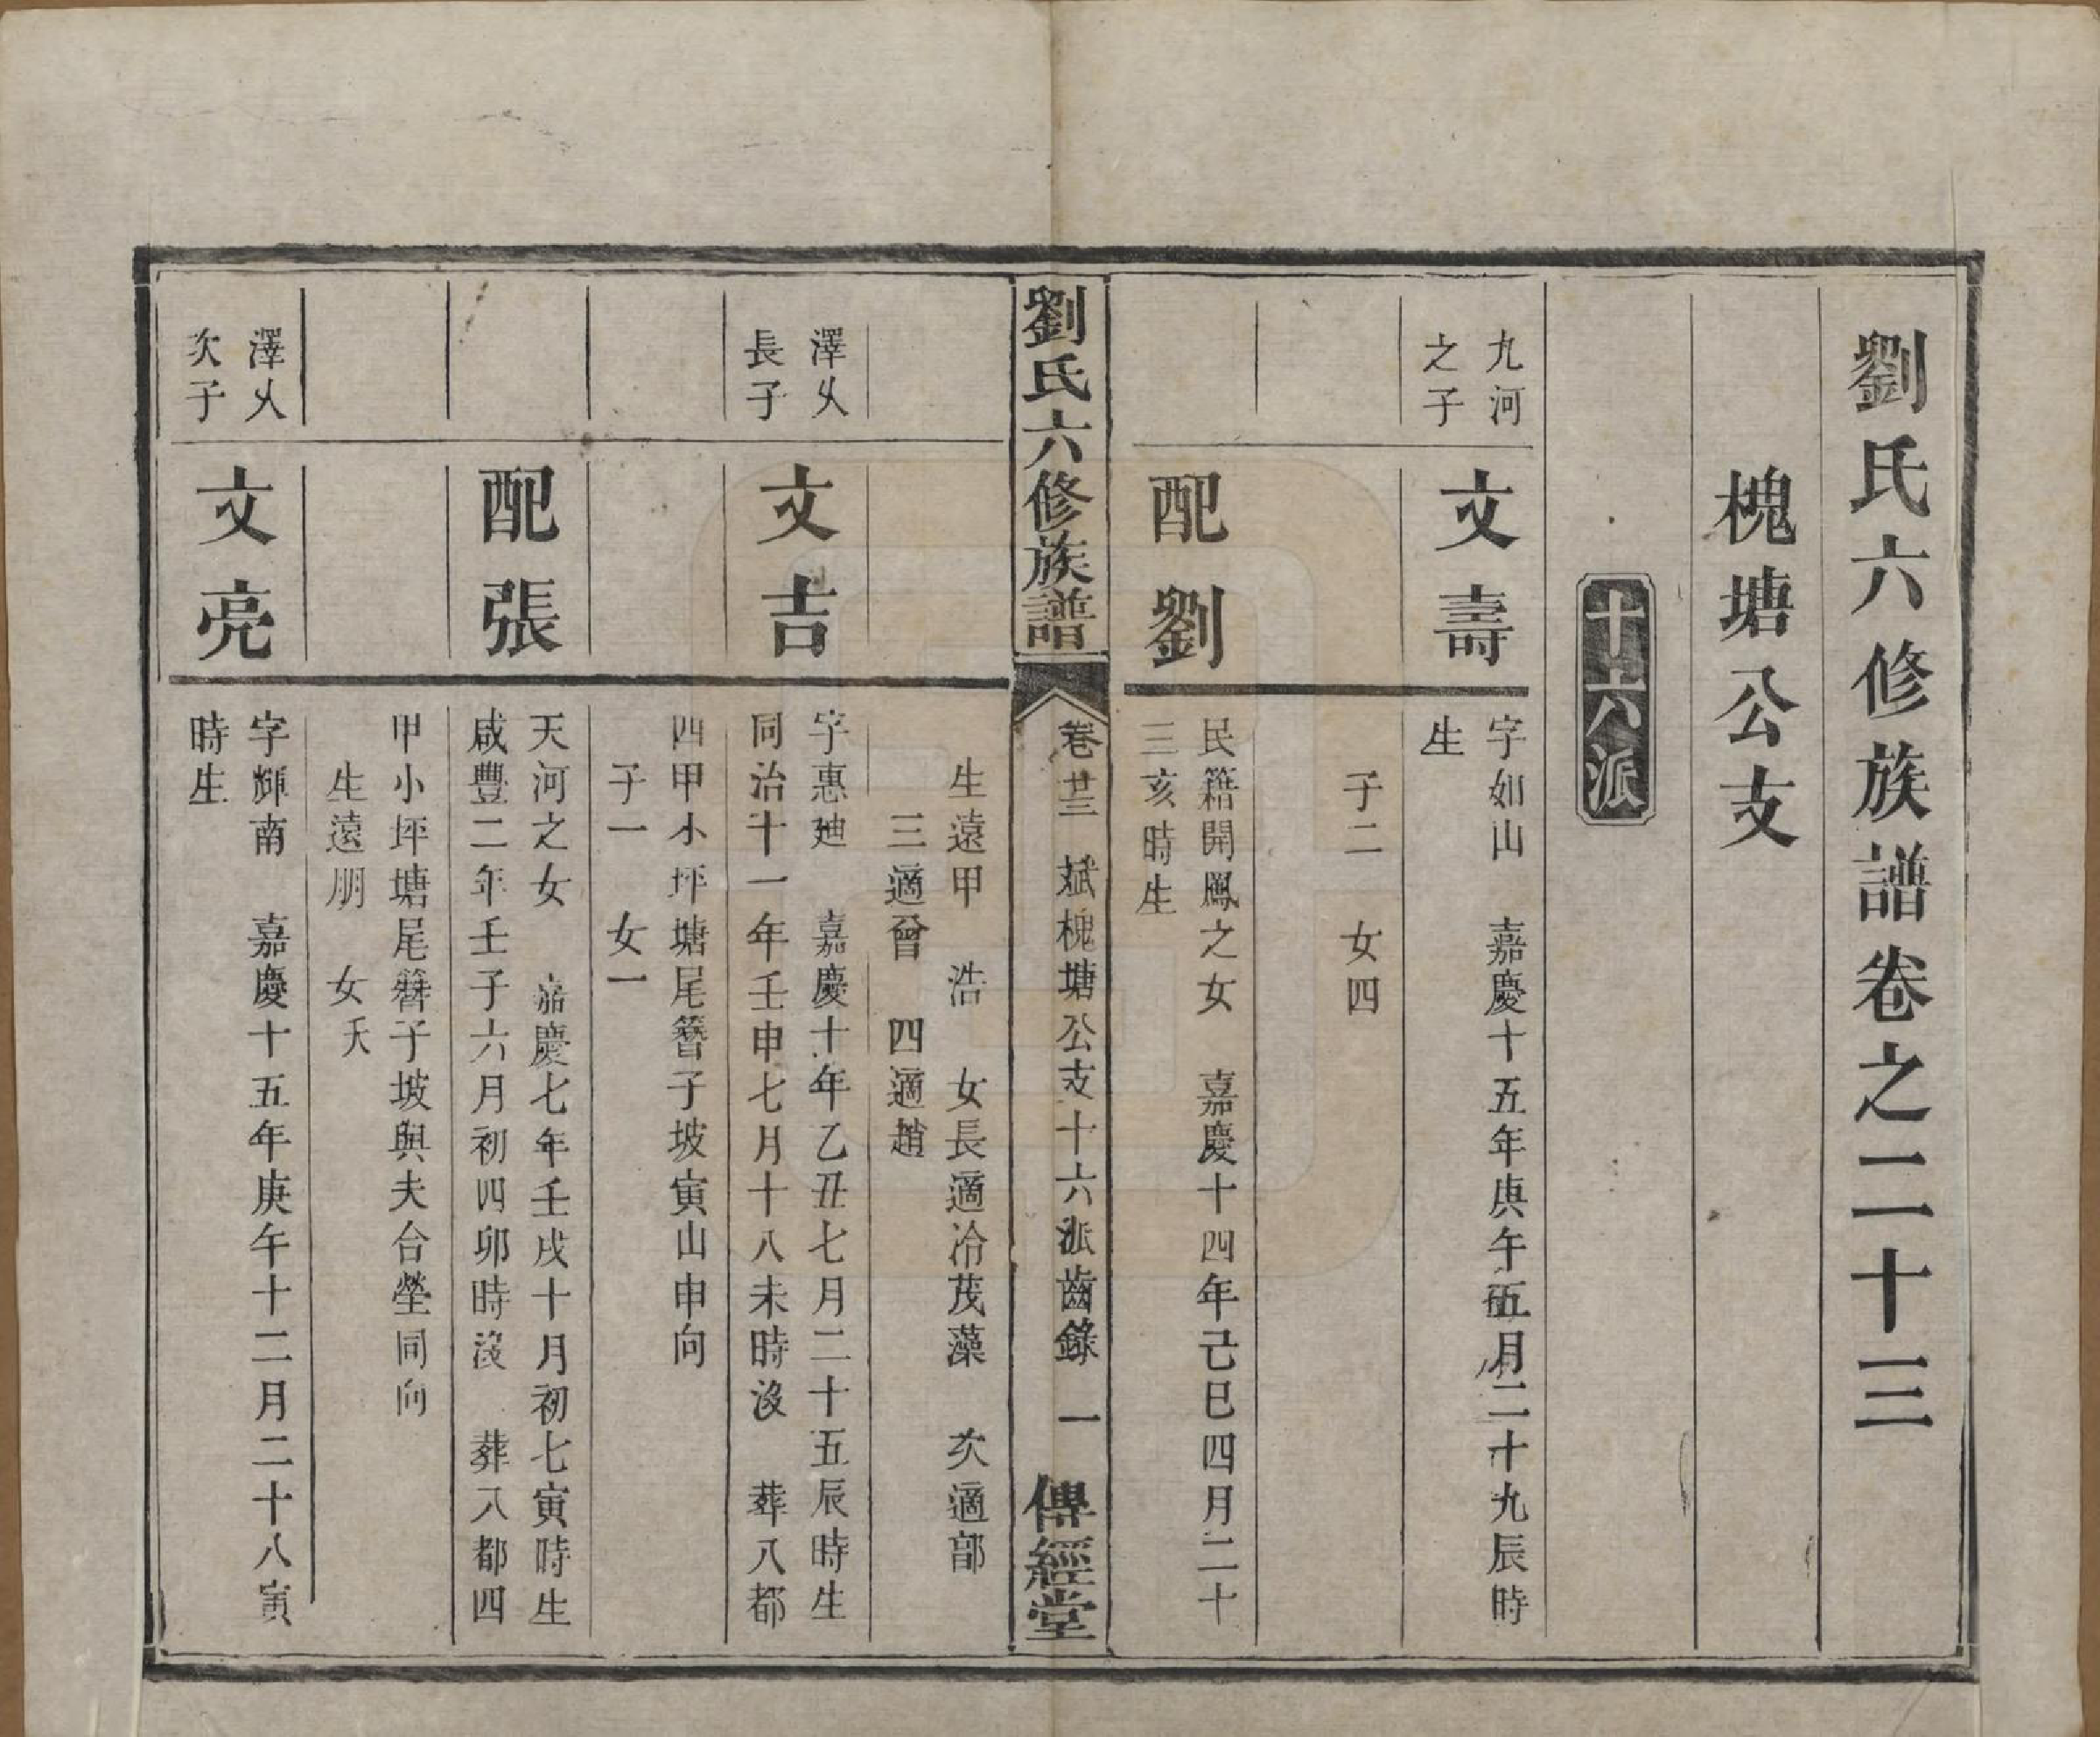 劉氏六修族譜卷之二十三
槐塘公支
十六派
九河
之子
文壽
字如山　嘉慶十五年庚午五月二十九辰時
生
子二　女四
配劉
民籍開鳳之女　嘉慶十四年己巳四月二十
三亥時生
劉氏六修族譜
卷廿三　斌槐塘公支十六派齒錄　一
傳經堂
生遠甲　浩　女長適冷茂藻　次適部
三適曾　四適趙
澤乂
長子
文吉
字惠廸　嘉慶十年乙丑七月二十五辰時生
同治十一年壬申七月十八未時沒　葬八都
四甲小坪塘尾簪子坡寅山申向
子一　女一
配張
天河之女　嘉慶七年壬戌十月初七寅時生
咸豐二年壬子六月初四卯時沒　葬八都四
甲小坪塘尾簪子坡與夫合塋同向
生遠朋　女夭
澤乂
次子
文亮
字輝南　嘉慶十五年庚午十二月二十八寅
時生